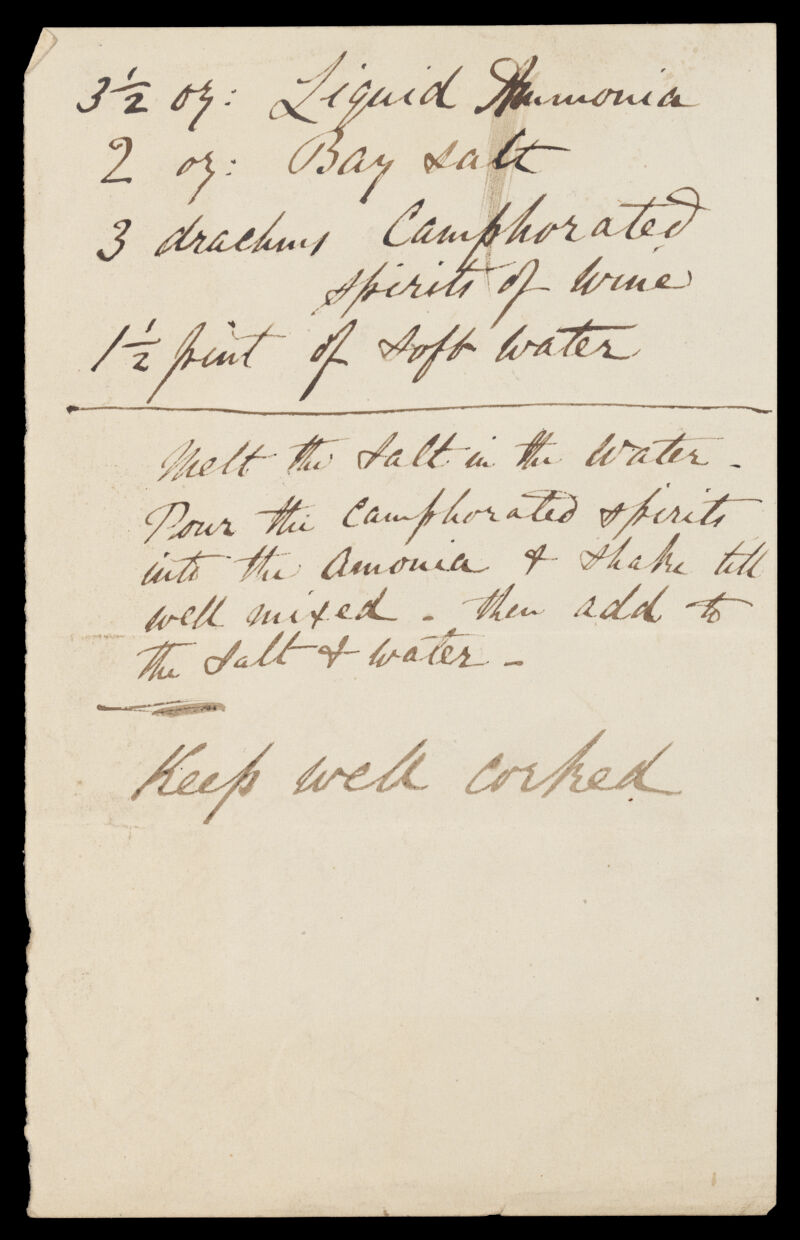 3½ oz: Liquid Ammonia
2 oz: Bay salt
3 drachms Camphorated
spirits of wine
1½ pint of soft water
Melt the salt in the water -
Pour the camphorated spirits
into the amonia & shake till
well mixed - then add to
the salt & water -
Keep well corked